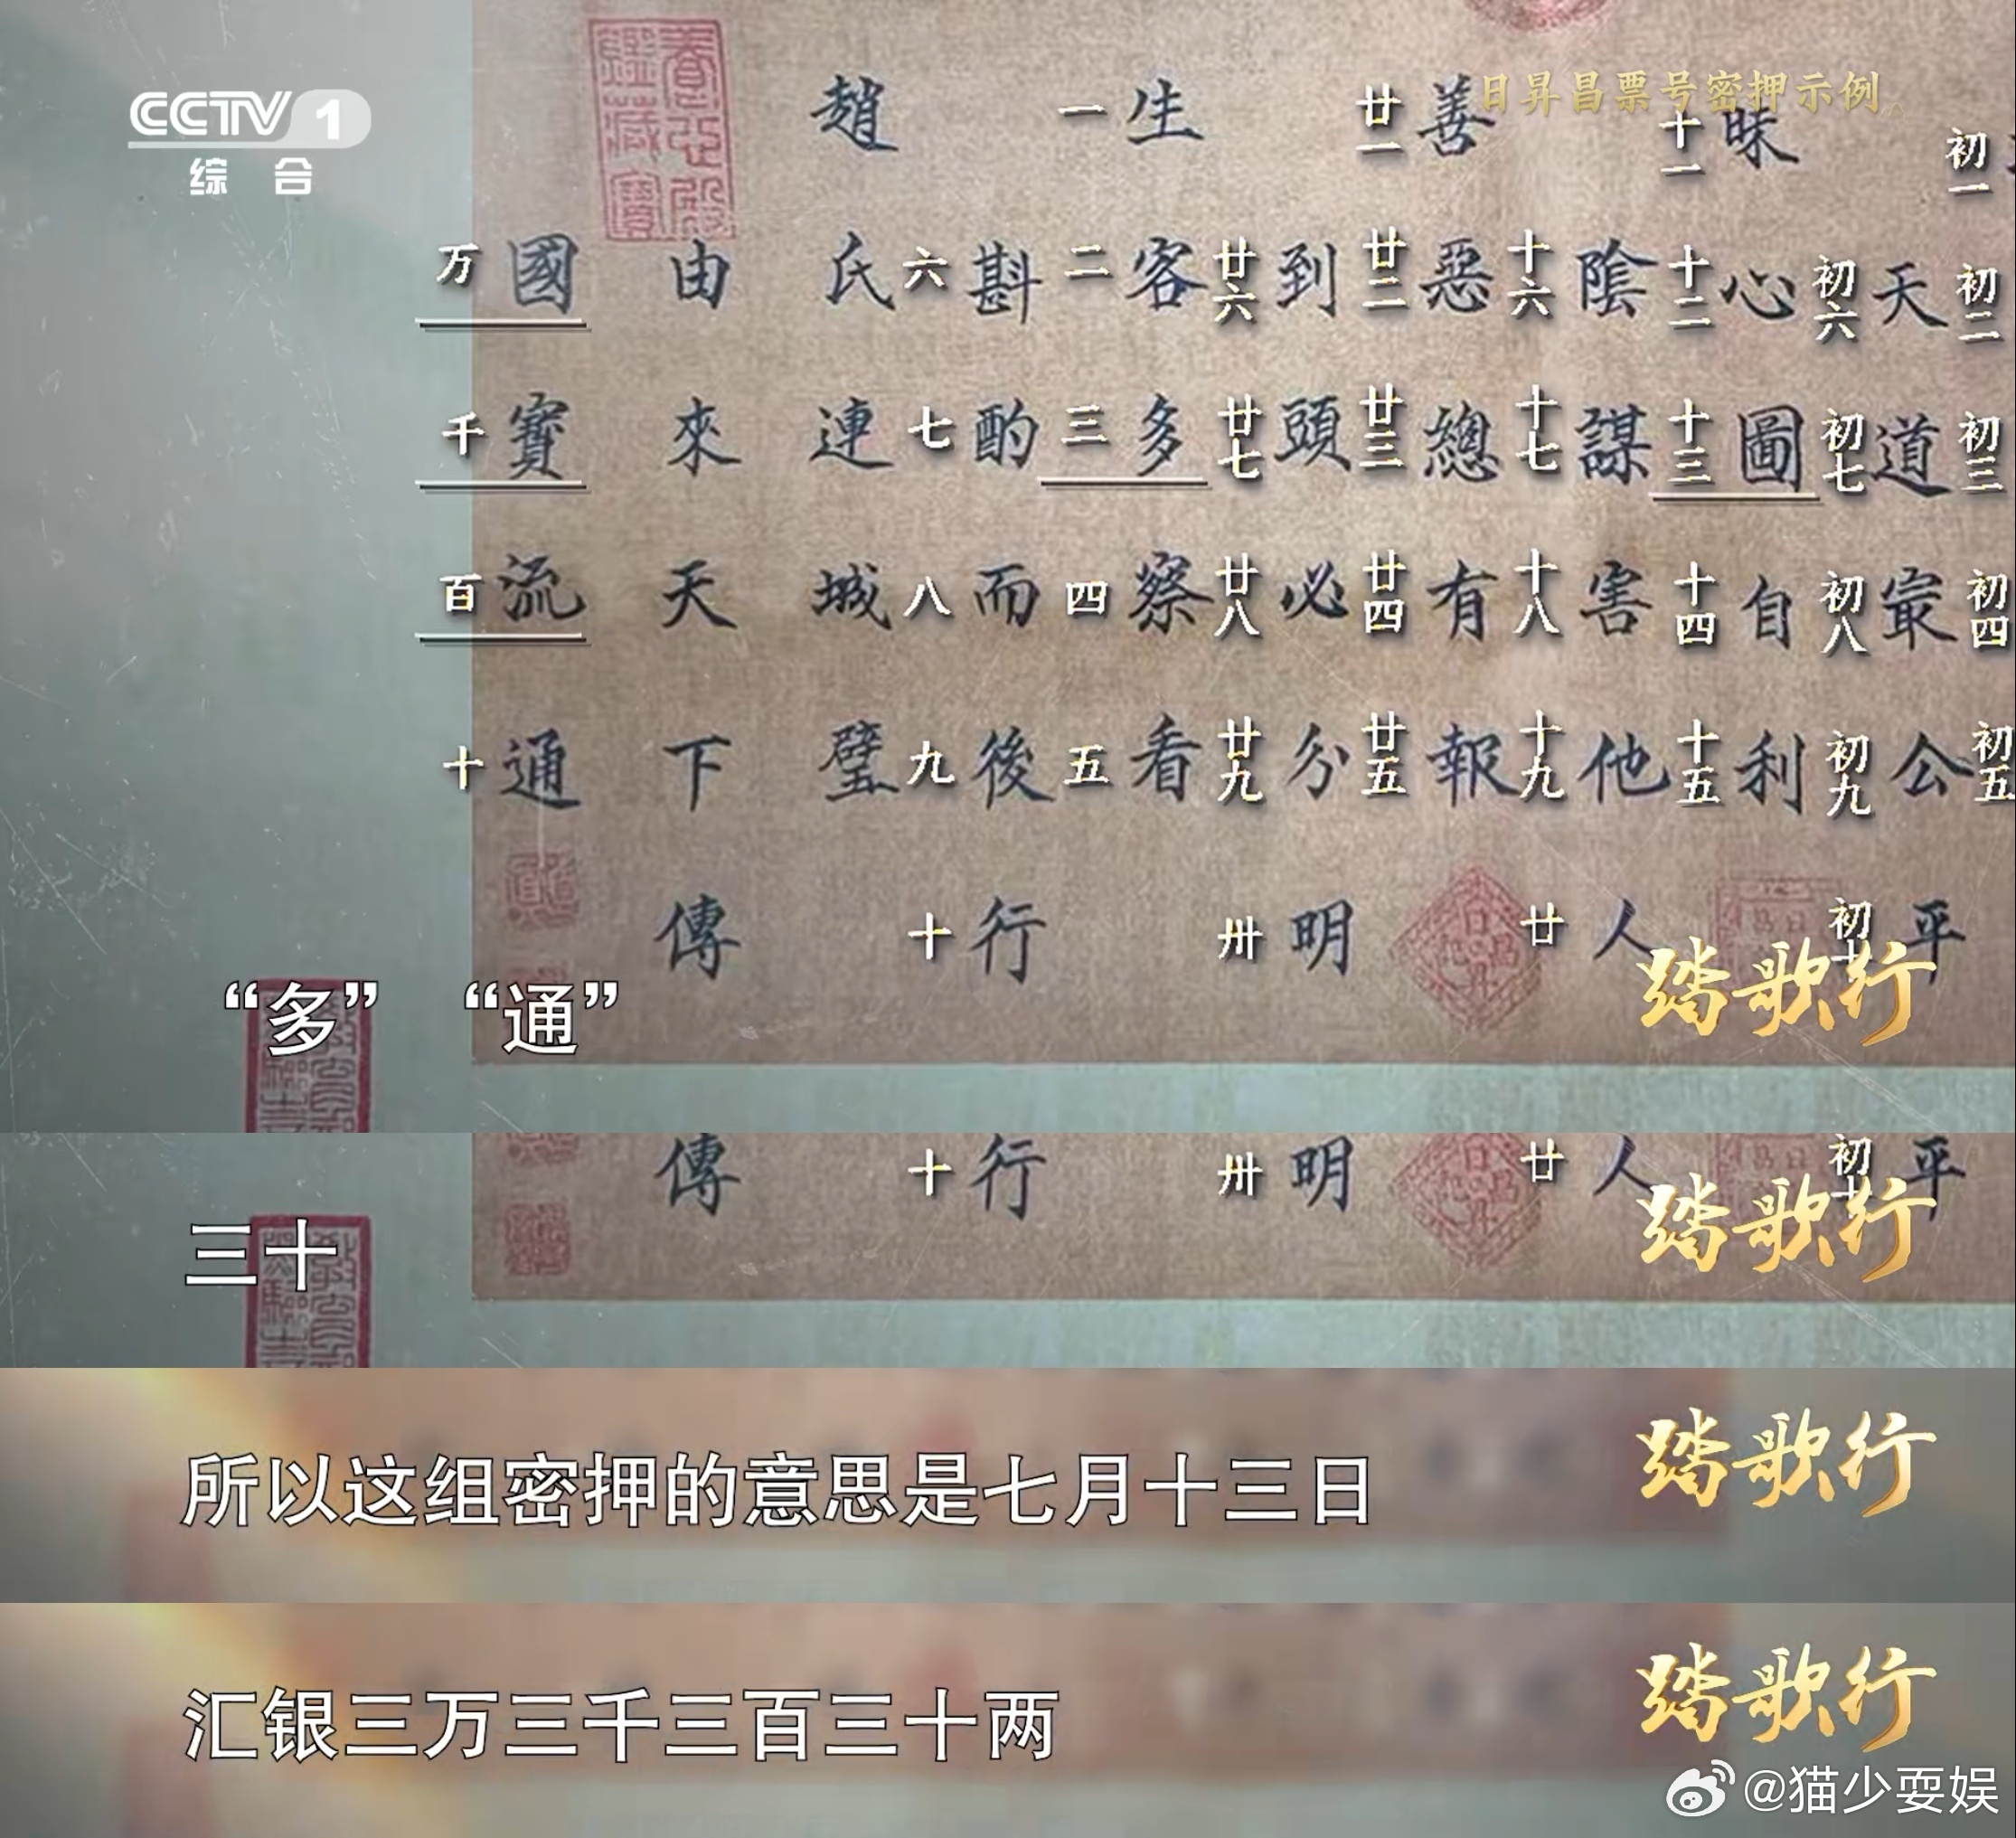 CCTV 1
综合
日昇昌票号密押示例
初一 初二 初三 初四 初五
天道最公平
初六 初七 初八 初九
昧心圖自利
十一 十二 十三 十四 十五
陰謀害他人
十六 十七 十八 十九 廿
善惡總有報
廿一 廿二 廿三 廿四 廿五
到頭必分明
廿六 廿七 廿八 廿九 卅
生客多察看
一 二 三 四 五
斟酌而後行
六 七 八 九 十
趙氏連城璧
由來天下傳
國寶流通
万 千 百 十
“多” “通”
踏歌行
傳 十 行 卅 明 廿 人 初 平
三十
踏歌行
所以这组密押的意思是七月十三日
踏歌行
汇银三万三千三百三十两
踏歌行
@猫少耍娱